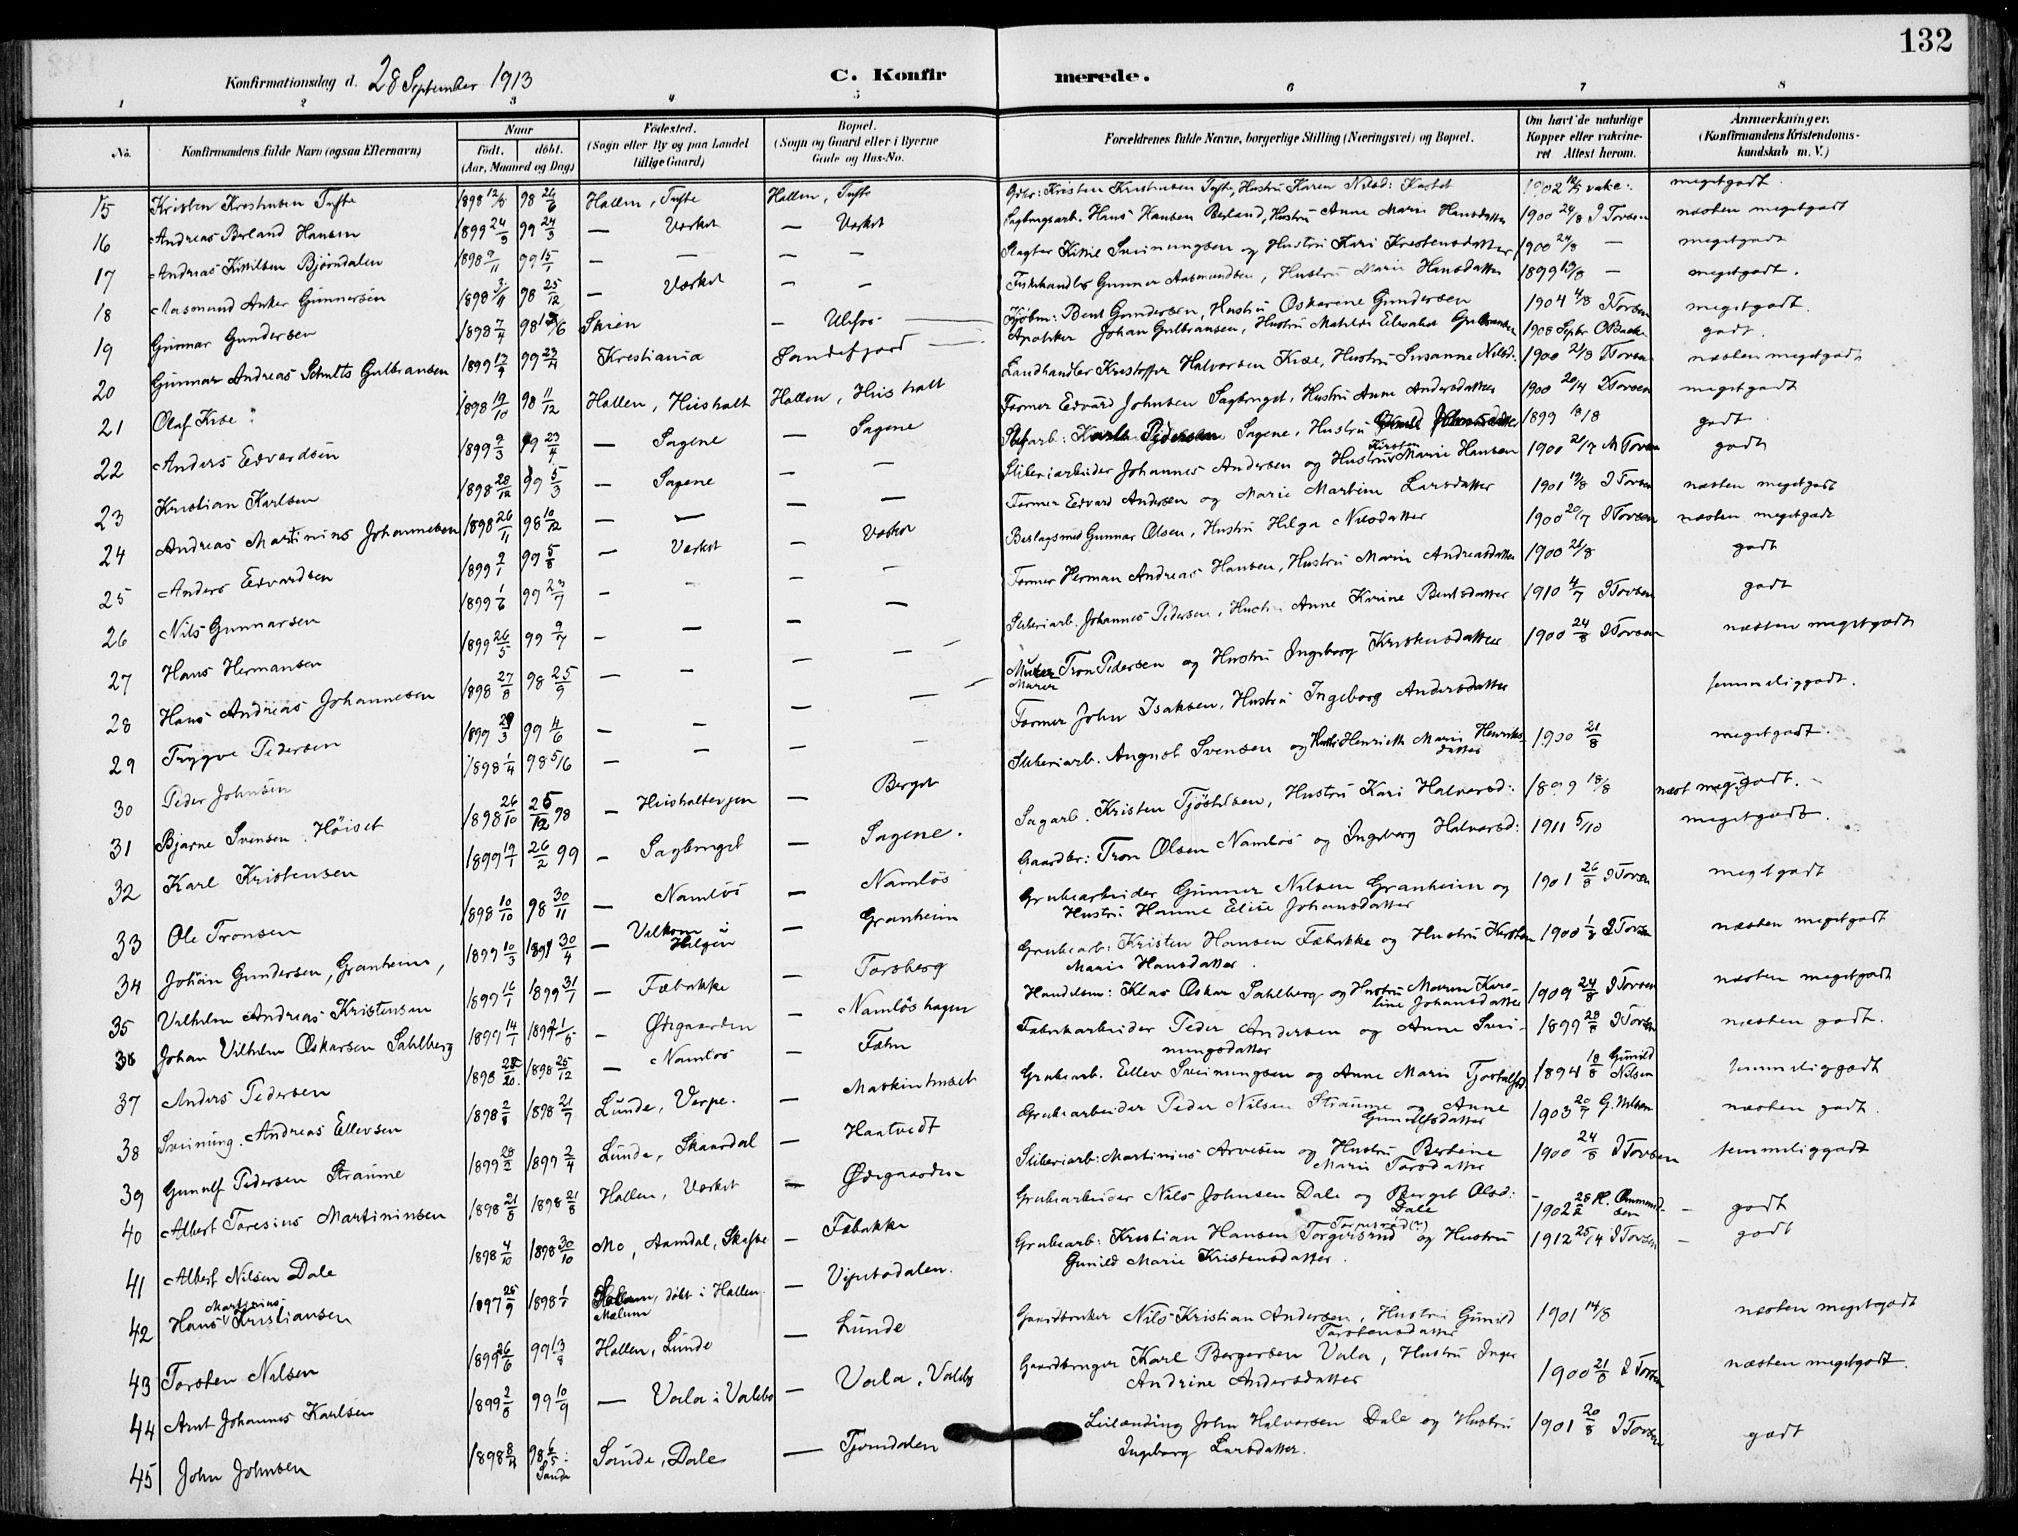 132
Konfirmationsdag d. 28 September 1913
C. Konfirmerede.
1 2 3 4 5 6 7 8
No. Konfirmandens fulde Navn (ogsaa Efternavn) Naar født. døbt. (Aar, Maaned og Dag) Fødested. (Sogn eller By og paa Landet tillige Gaard) Bopæl. (Sogn og Gaard eller i Byerne Gade og Hus-No. Forældrenes fulde Navne, borgerlige Stilling (Næringsvei) og Bopæl. Om havt de naturlige Kopper eller vakcineret Attest herom. Anmærkninger. (Konfirmandens Kristendomskundskab m. V.)
15 Kristen Kristensen Tufte 1898 12/5 98 26/6 Hollen, Tufte Hollen, Tufte Gbr: Kristen Kristensen Tufte, Hustru Karen Nilsd: 1902 vakc: megetgodt
16 Andreas Berland Hansen 1899 24/3 99 24/3 — Værket — Værket Sagbrugsarb. Hans Hansen Berland, Hustru Anne Marie Hansdatter 1900 24/8 I Torsen næsten megetgodt
17 Andreas Kittilsen Bjørndalen 1898 9/11 99 15/1 — — — — Slagter Kittil Sveinungsen og Hustru Kari Kristensdatter 1900 24/8 — megetgodt
18 Aasmund Anker Gunnersen 1898 3/11 98 25/12 — Værket — — Fiskehandler Gunner Aasmundsen, Hustru Marie Hansdatter 1899 19/8 — megetgodt.
19 Gunnar Gundersen 1898 7/4 98 Skien — Ulefos Kjøbm: Bent Gundersen, Hustru Oskarine Gundersen 1904 4/8 I Torsen megetgodt.
20 Gunnar Andreas Schultz Gulbransen 1899 99 23/4 Kristiania Sandefjord Apotheker Johan Gulbransen, Hustru Mathilde Elisabet Gulbransen 1908 Septbr godt.
21 Olaf Kise 1898 19/10 98 11/12 Hollen, Husholt Hollen, Husholt Landhandler Kristoffer Halvorsen Kise, Hustru Susanne Nilsd: 1900 21/8 I Torsen næsten megetgodt
22 Anders Edvardsen 1899 9/3 99 23/4 — Sagene — Sagene Former Edvard Johnsen Sagbruget, Hustru Anne Andersdatter 1900 20/4 I Torsen megetgodt
23 Kristian Karlsen 1898 28/12 99 5/3 — Sagene — — arb: Karl Pedersen Sagene, Hustru 1899 18/8 godt
24 Andreas Martinius Johannesen 1898 26/11 98 10/12 — — — — Sliberiarbeider Johannes Andersen og Hustru Kirsten Marie Hansen 1900 21/7 Torsen godt
25 Anders Edvardsen 1899 2/1 99 5/8 — Værket — Værket Former Edvard Andersen og Marie Martine Larsdatter 1901 19/8 I Torsen næsten megetgodt
26 Nils Gunnarsen 1899 1/6 99 23/7 — — — — Beslagsmed Gunnar Olsen, Hustru Helga Nilsdatter 1900 20/7 I Torsen næsten megetgodt
27 Hans Hermansen 1899 26/5 99 9/7 — — — — Former Herman Andreas Hansen, Hustru Maria Andreasdatter 1900 21/8 godt
28 Hans Andreas Johannesen 1898 27/8 98 25/9 — — — — Sliberiarb. Johannes Pedersen, Hustru Anne Karine Bentsdatter 1910 4/7 I Torsen godt
29 Trygve Pedersen 1899 29/3 99 4/6 — — — — Murer Tron Pedersen og Hustru Ingeborg Kristensdatter 1900 24/8 I Torsen næsten megetgodt
Murer
30 Peder Johnsen 1898 1/4 98 5/6 — — — — Former John Isaksen, Hustru Ingeborg Andersdatter temmeliggodt.
31 Bjarne Svensen Høiset 1898 26/10 25/12 98 — Husholteien — Berget Sliberiarb. August Svensen og Hustru Henriette Marie Henriksdatter 1900 21/8 megetgodt.
32 Karl Kristensen 1899 19/1 26/2 99 — Sagbruget — Sagene. Sagarb. Kristen Tjøstelsen, Hustru Kari Halvorsd: 1899 18/8 næst megetgodt.
33 Ole Tronsen 1898 10/10 98 30/11 — Namløs — Namløs Gaardbr: Tron Olsen Namløs og Ingeborg Halvorsd: 1911 5/10 megetgodt.
34 Johan Gundersen, Granheim 1899 10/3 1899 30/4 — Valkom i Helgen — Granheim Grubearbeider Gunner Nilsen Granheim og Hustru Hanne Elise Johansdatter 1901 26/8 I Torsen megetgodt
35 Vilhelm Andreas Kristensen 1899 16/1 1899 31/1 — Fæbakke — Torsberg Grubearb: Kristen Hansen Fæbakke og Hustru Kirsten Marie Hansdatter. 1900 1/8 I Torsen næsten megetgodt
36 Johan Vilhelm Oskarsen Sahlberg 1899 14/1 1899 — Ødegaarden — Namløshagen Handelsm: Klas Oskar Sahlberg og Hustru Maren Karoline Johansdatter 1909 24/8 I Torsen næsten megetgodt
37 Anders Pedersen 1898 1898 25/12 — Namløs — Fæhn Fabrikarbeider Peder Andersen og Anne Sveinungsdatter 1899 28/8 I Torsen næsten godt.
38 Sveinung Andreas Ellevsen 1898 2/8 1898 21/9 Lunde, Verpe. — Maskinhuset Grubearb. Ellev Sveinungsen og Anne Marie 1894 18/8 Gunild Nilsen temmeliggodt
39 Gunulf Pedersen Straume 1899 28/2 1899 2/4 Lunde, Skaardal — Haatvedt Grubearbeider Peder Nilsen Straume og Anne Gunulfsdatter 1903 20/7 G. Nilsen næsten godt.
40 Albert Toresius Martininsen 1898 21/8 1898 21/8 Hollen, Værket — Ødegaarden Sliberiarb: Martinius Arvesen og Hustru Bertine Marie Torsdatter 1900 24/8 I Torsen temmeliggodt
41 Albert Nilsen Dale 1898 4/10 1898 30/10 Mo, Aamdal, Skafse — Fæbakke Grubearbeider Nils Johnsen Dale og Berget Olsd: Dale 1902 — godt
42 Hans Martinius Kristiansen 1897 1898 Holum, døbt i Hollen. — Vipetodalen. Grubearb: Kristian Hansen Torgrisrud og Hustru Gunild Marie Kristensdatter. 1912 25/4 I Torsen — godt
43 Torsten Nilsen 1899 26/6 99 13/8 Hollen, Lunde — Lunde Gaardbruker Nils Kristian Andersen, Hustru Gunild Torstensdatter 1901 14/8 næsten megetgodt
44 Arnt Johannes Karlsen 1899 2/8 99 10/9 — Vala i Valebø — Vala, Valebø Gaardbruger Karl Bergersen Vala, Hustru Inger Andrine Andersdatter 1900 21/8 I Torsen næsten megetgodt.
45 John Johnsen 1898 8/4 98 6/5: Sande Sande, Dale — Tjomdalen Leilænding John Halvorsen Dale og Hustru Ingeborg Larsdatter. 1901 20/8 I Torsen godt